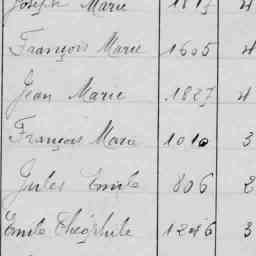 Joseph Marie 1817 4
François Marie 1605 4
Jean Marie 1827 4
François Marie 1010 3
Jules Emile 806 2
Emile Théophile 1246 3